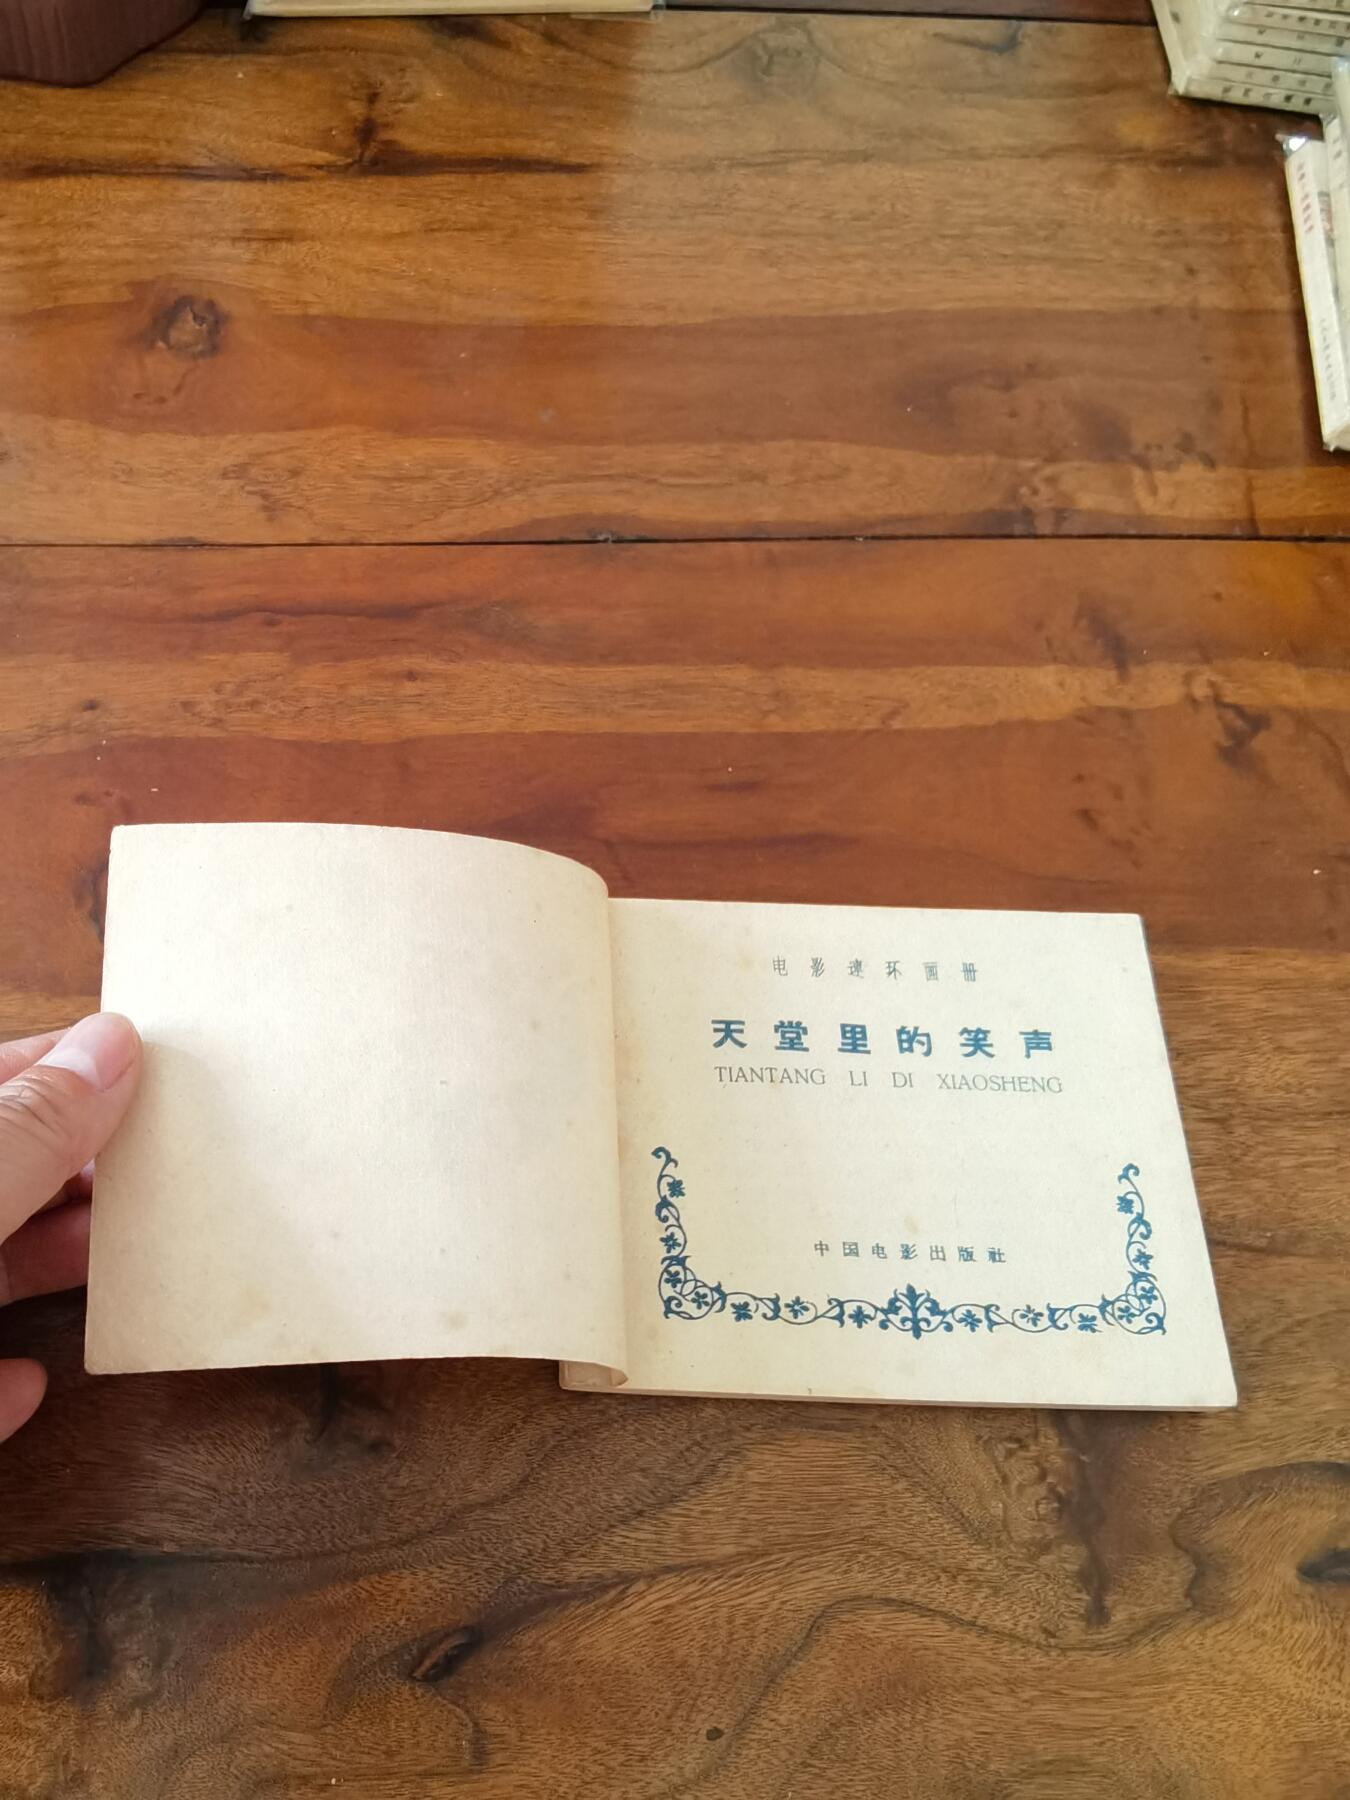 电影连环画册
天堂里的笑声
TIANTANG LI DI XIAOSHENG
中国电影出版社